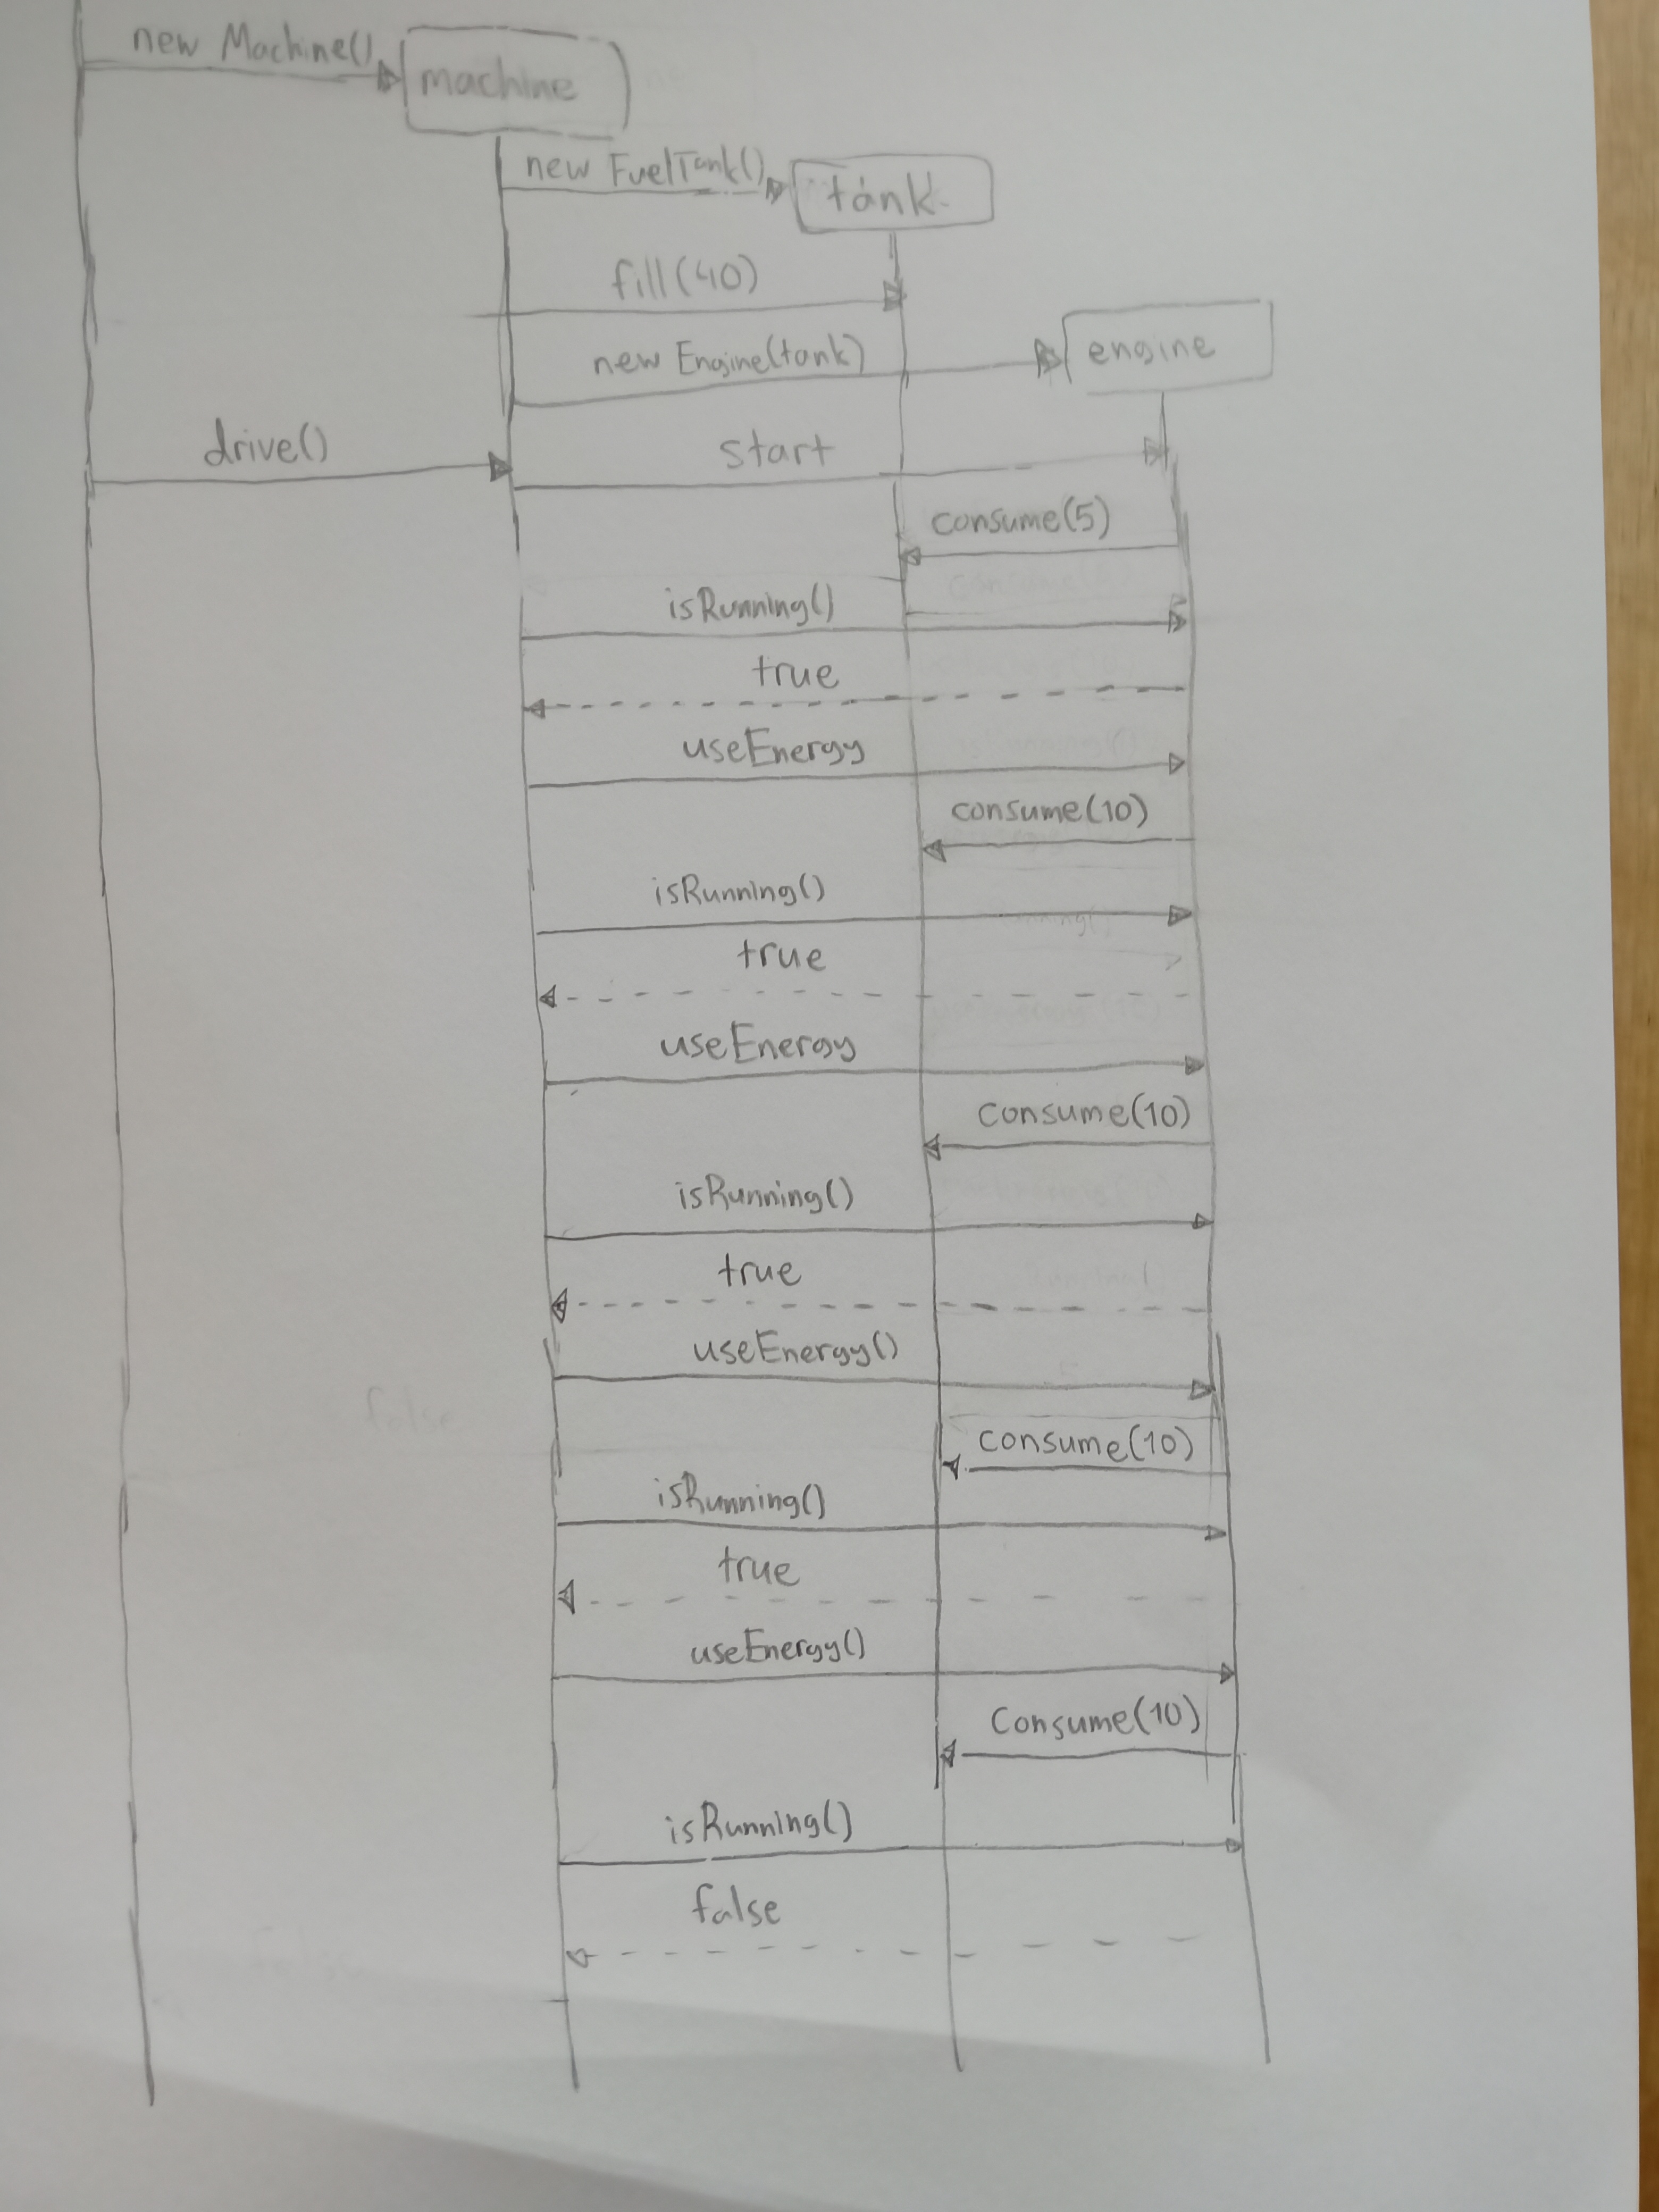 new Machine()
machine
new FuelTank()
tank
fill(40)
new Engine(tank)
engine
drive()
start
consume(5)
isRunning()
true
useEnergy
consume(10)
isRunning()
true
useEnergy
consume(10)
isRunning()
true
useEnergy()
false
consume(10)
isRunning()
true
useEnergy()
Consume(10)
isRunning()
false